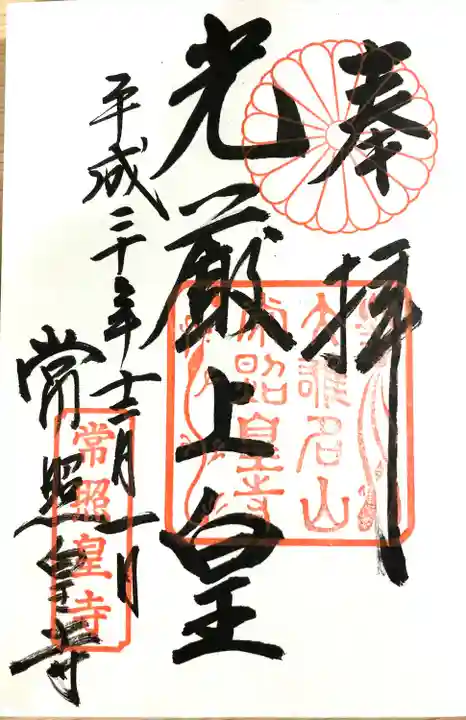 奉拝
光厳上皇
平成三十年十二月一日
常照皇寺
大雄名山
常照皇寺
常照皇寺